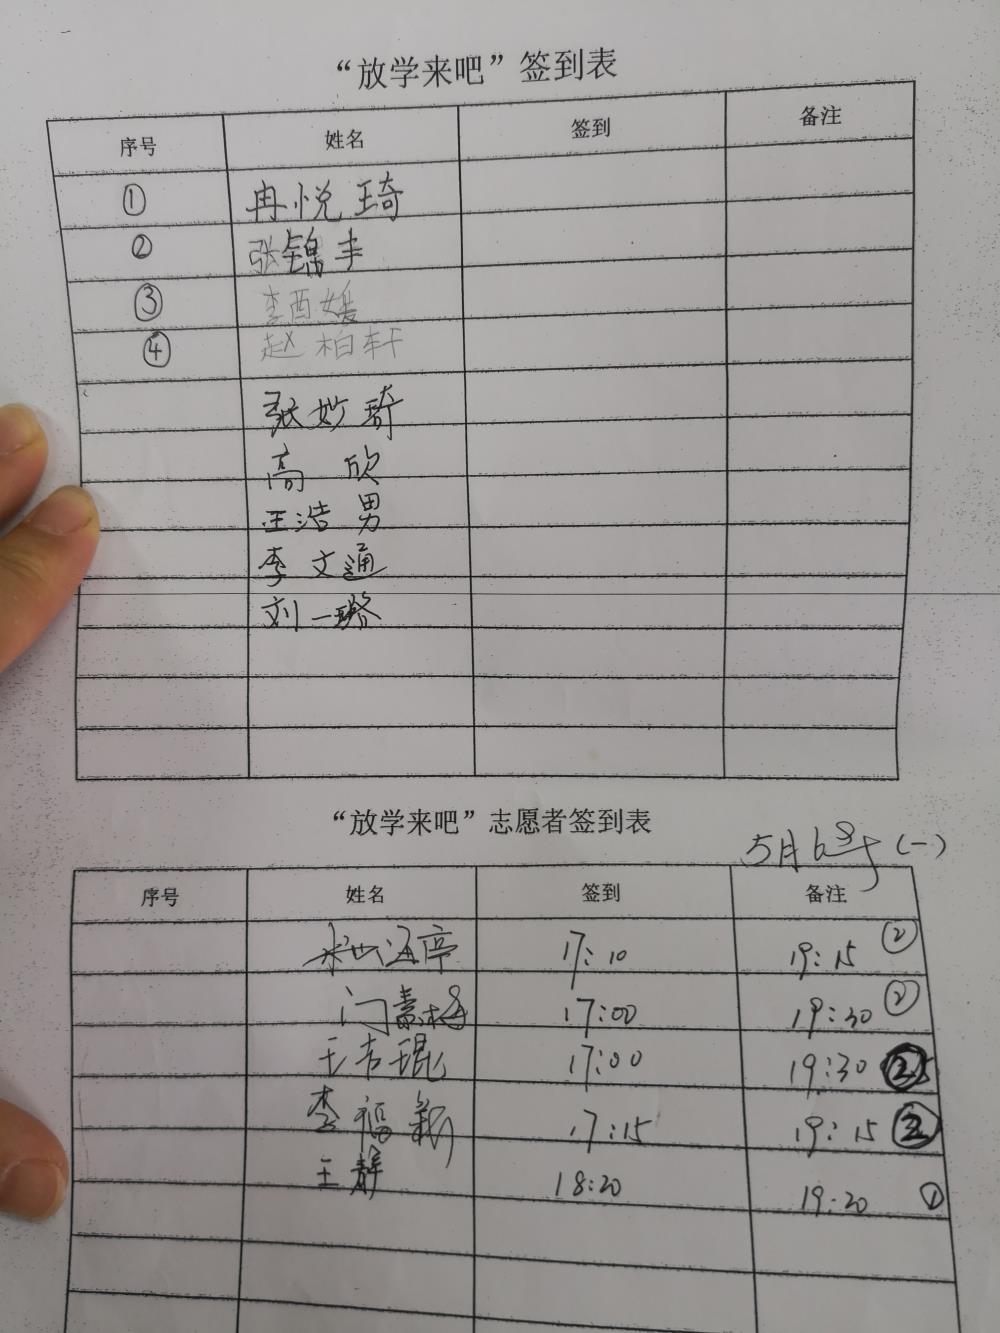 “放学来吧”签到表
序号 姓名 签到 备注
① 冉悦琦
② 张锦丰
③ 李酉媛
④ 赵柏轩
张妙琦
高欣
王浩男
李文通
刘一璐
“放学来吧”志愿者签到表
5月6号(一)
序号 姓名 签到 备注
17:10 19:15 ②
门素梅 17:00 19:30 ②
王吉琨 17:00 19:30 ②
李福新 17:15 19:15 ②
王静 18:20 19:20 ①